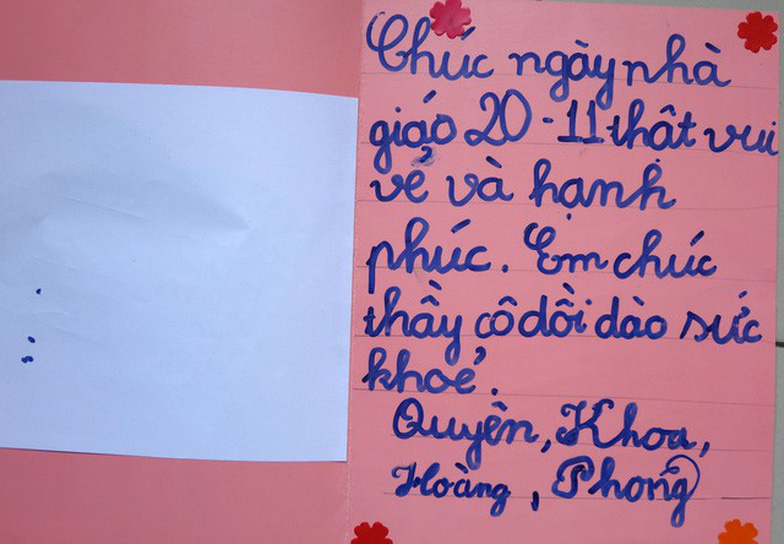 Chúc ngày nhà
giáo 20-11 thật vui
vẻ và hạnh
phúc. Em chúc
thầy cô dồi dào sức
khoẻ.
Quyên, Khoa,
Hoàng, Phong